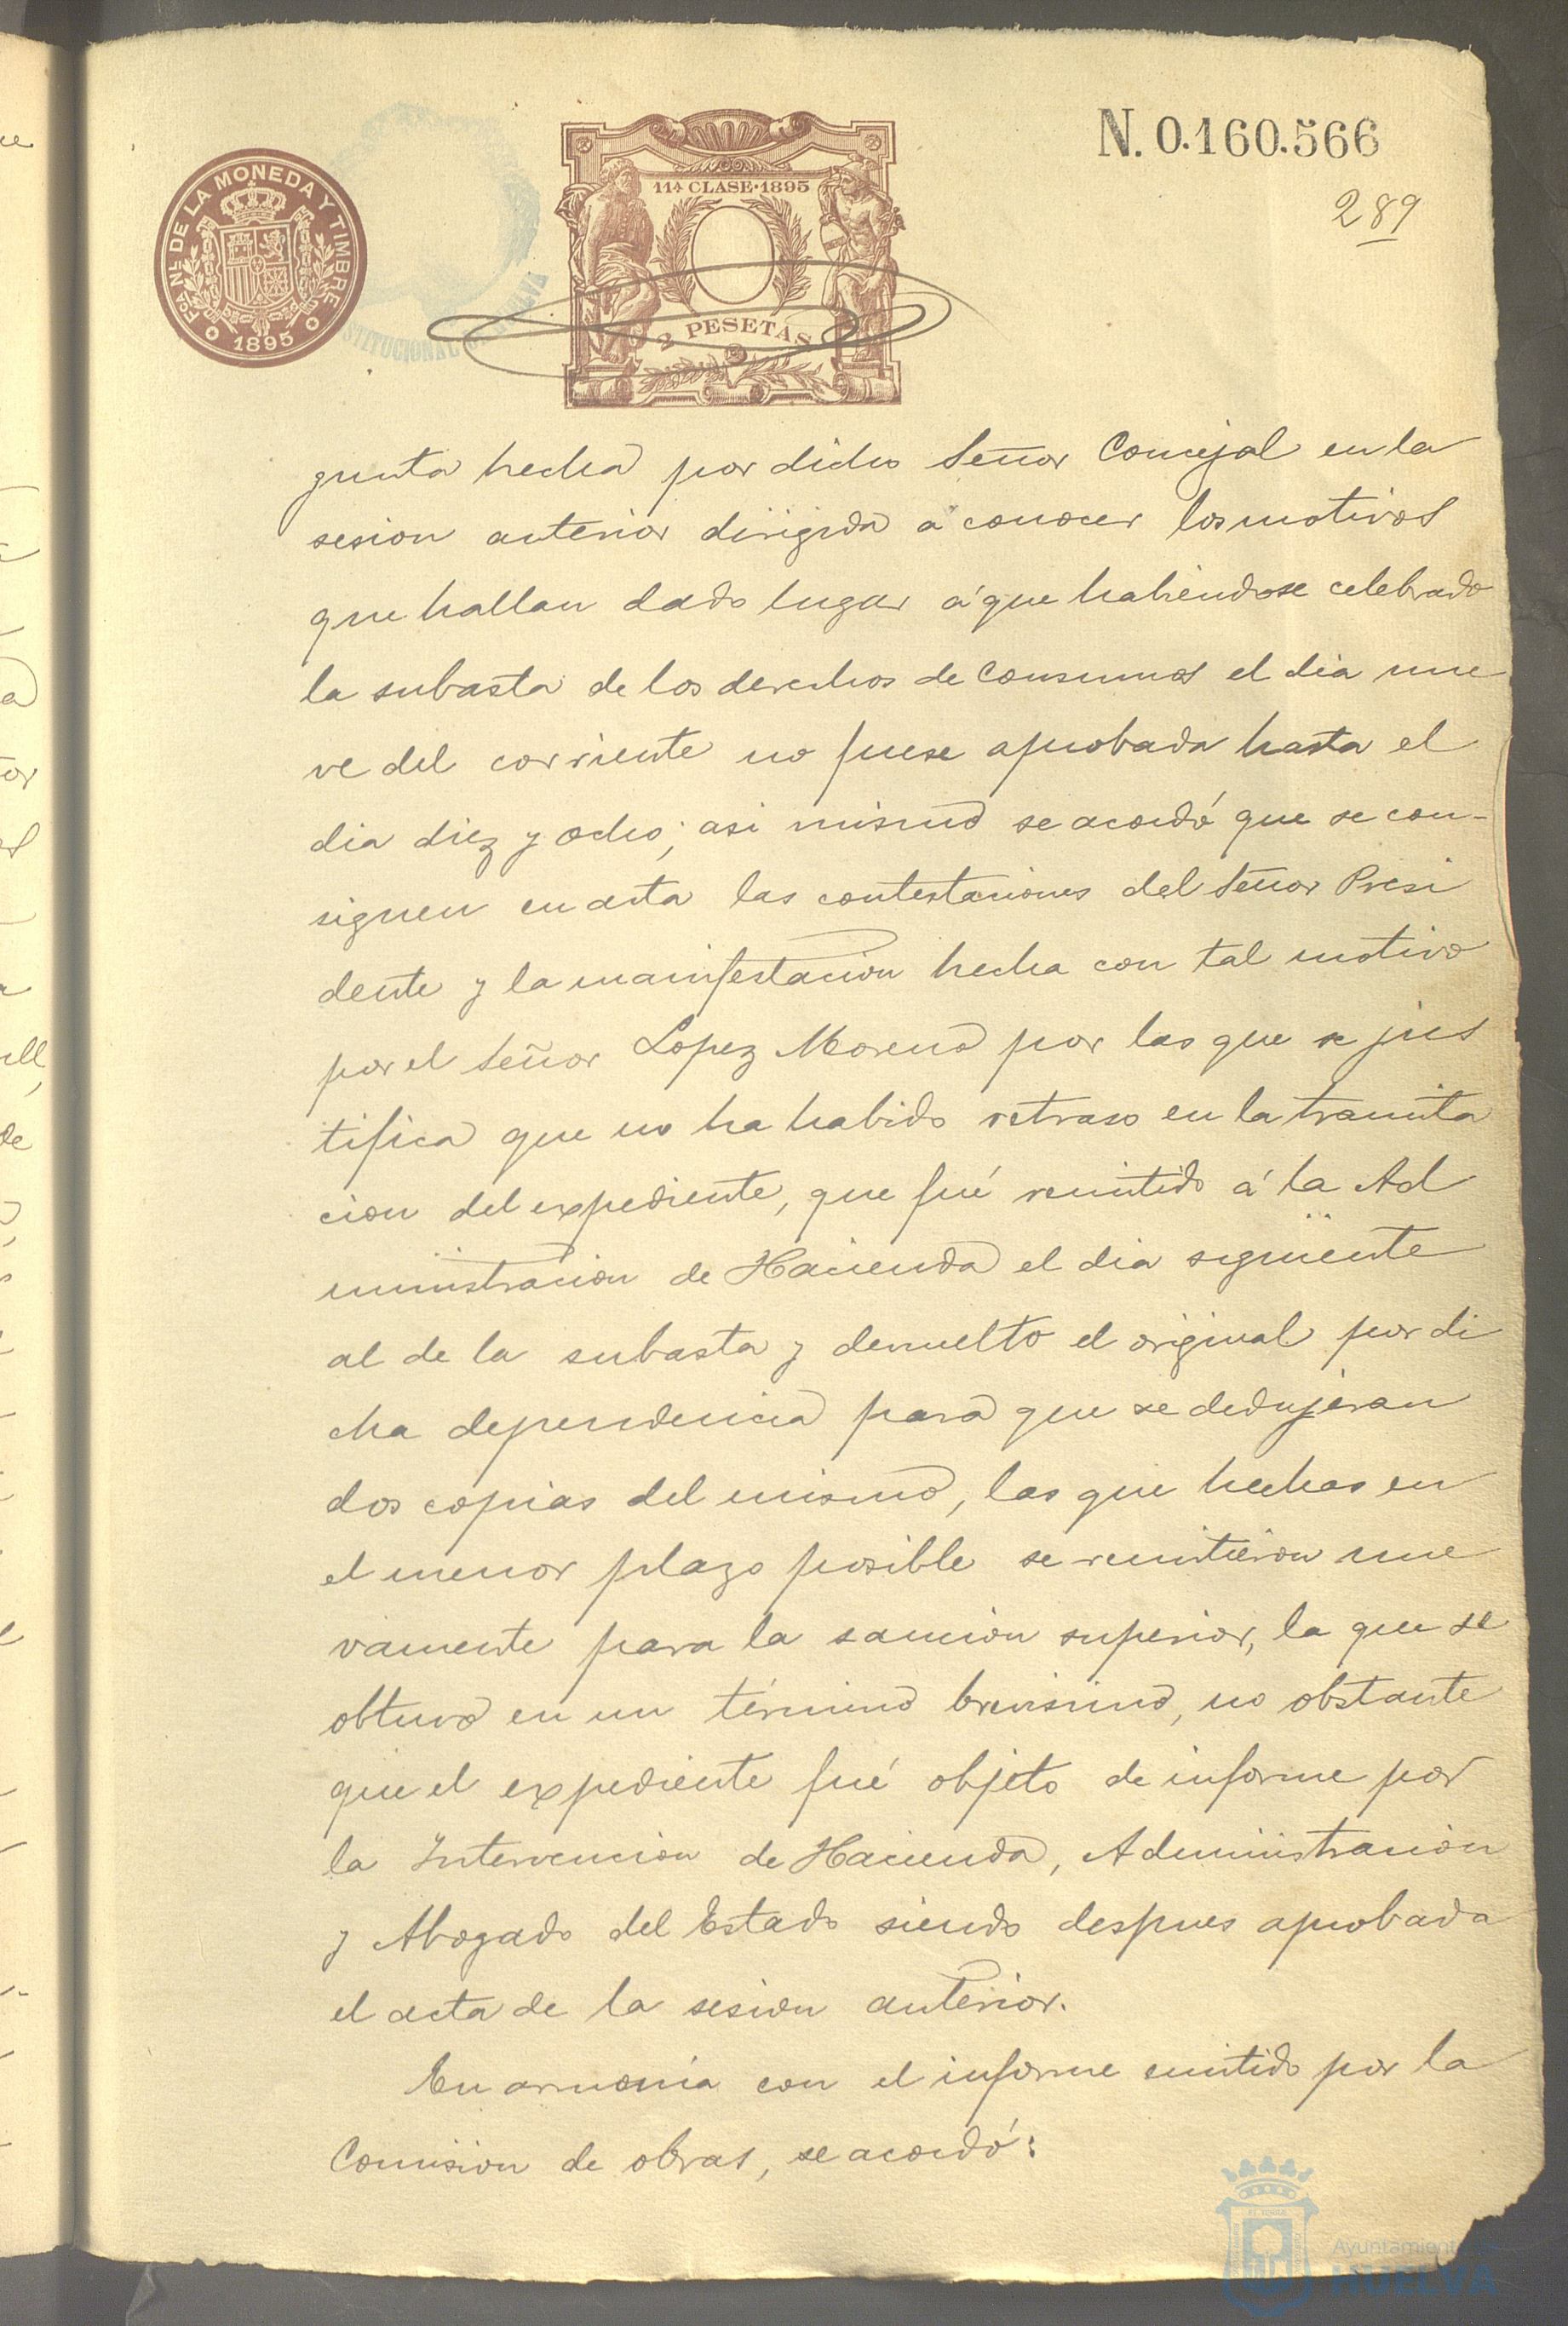 N. 0.160.566
289
FCA. NL. DE LA MONEDA Y TIMBRE
1895
11ª CLASE·1895
2 PESETAS
STITUCIONAL HUELVA
gunta hecha por dicho Señor Concejal en la
sesion anterior dirigida á conocer los motivos
que hallan dado lugar á que habiéndose celebrado
la subasta de los derechos de Consumos el dia nue
ve del corriente no fuese aprobada hasta el
dia diez y ocho; asi mismo se acordó que se con-
signen en acta las contestaciones del Señor Presi
dente y la manifestacion hecha con tal motivo
por el Señor Lopez Moreno por las que se jus
tifica que no ha habido retraso en la tramita
cion del expediente, que fué remitido á la Ad
ministracion de Hacienda el dia siguiente
al de la subasta y devuelto el original por di
cha dependencia para que se dedujeran
dos copias del mismo, las que hechas en
el menor plazo posible se remitieron nue
vamente para la sancion superior, la que se
obtuvo en un término brevisimo, no obstante
que el expediente fué objeto de informe por
la Intervencion de Hacienda, Administracion
y Abogado del Estado siendo despues aprobada
el acta de la sesion anterior.
En armonía con el informe emitido por la
Comision de obras, se acordó:
Ayuntamiento
HUELVA